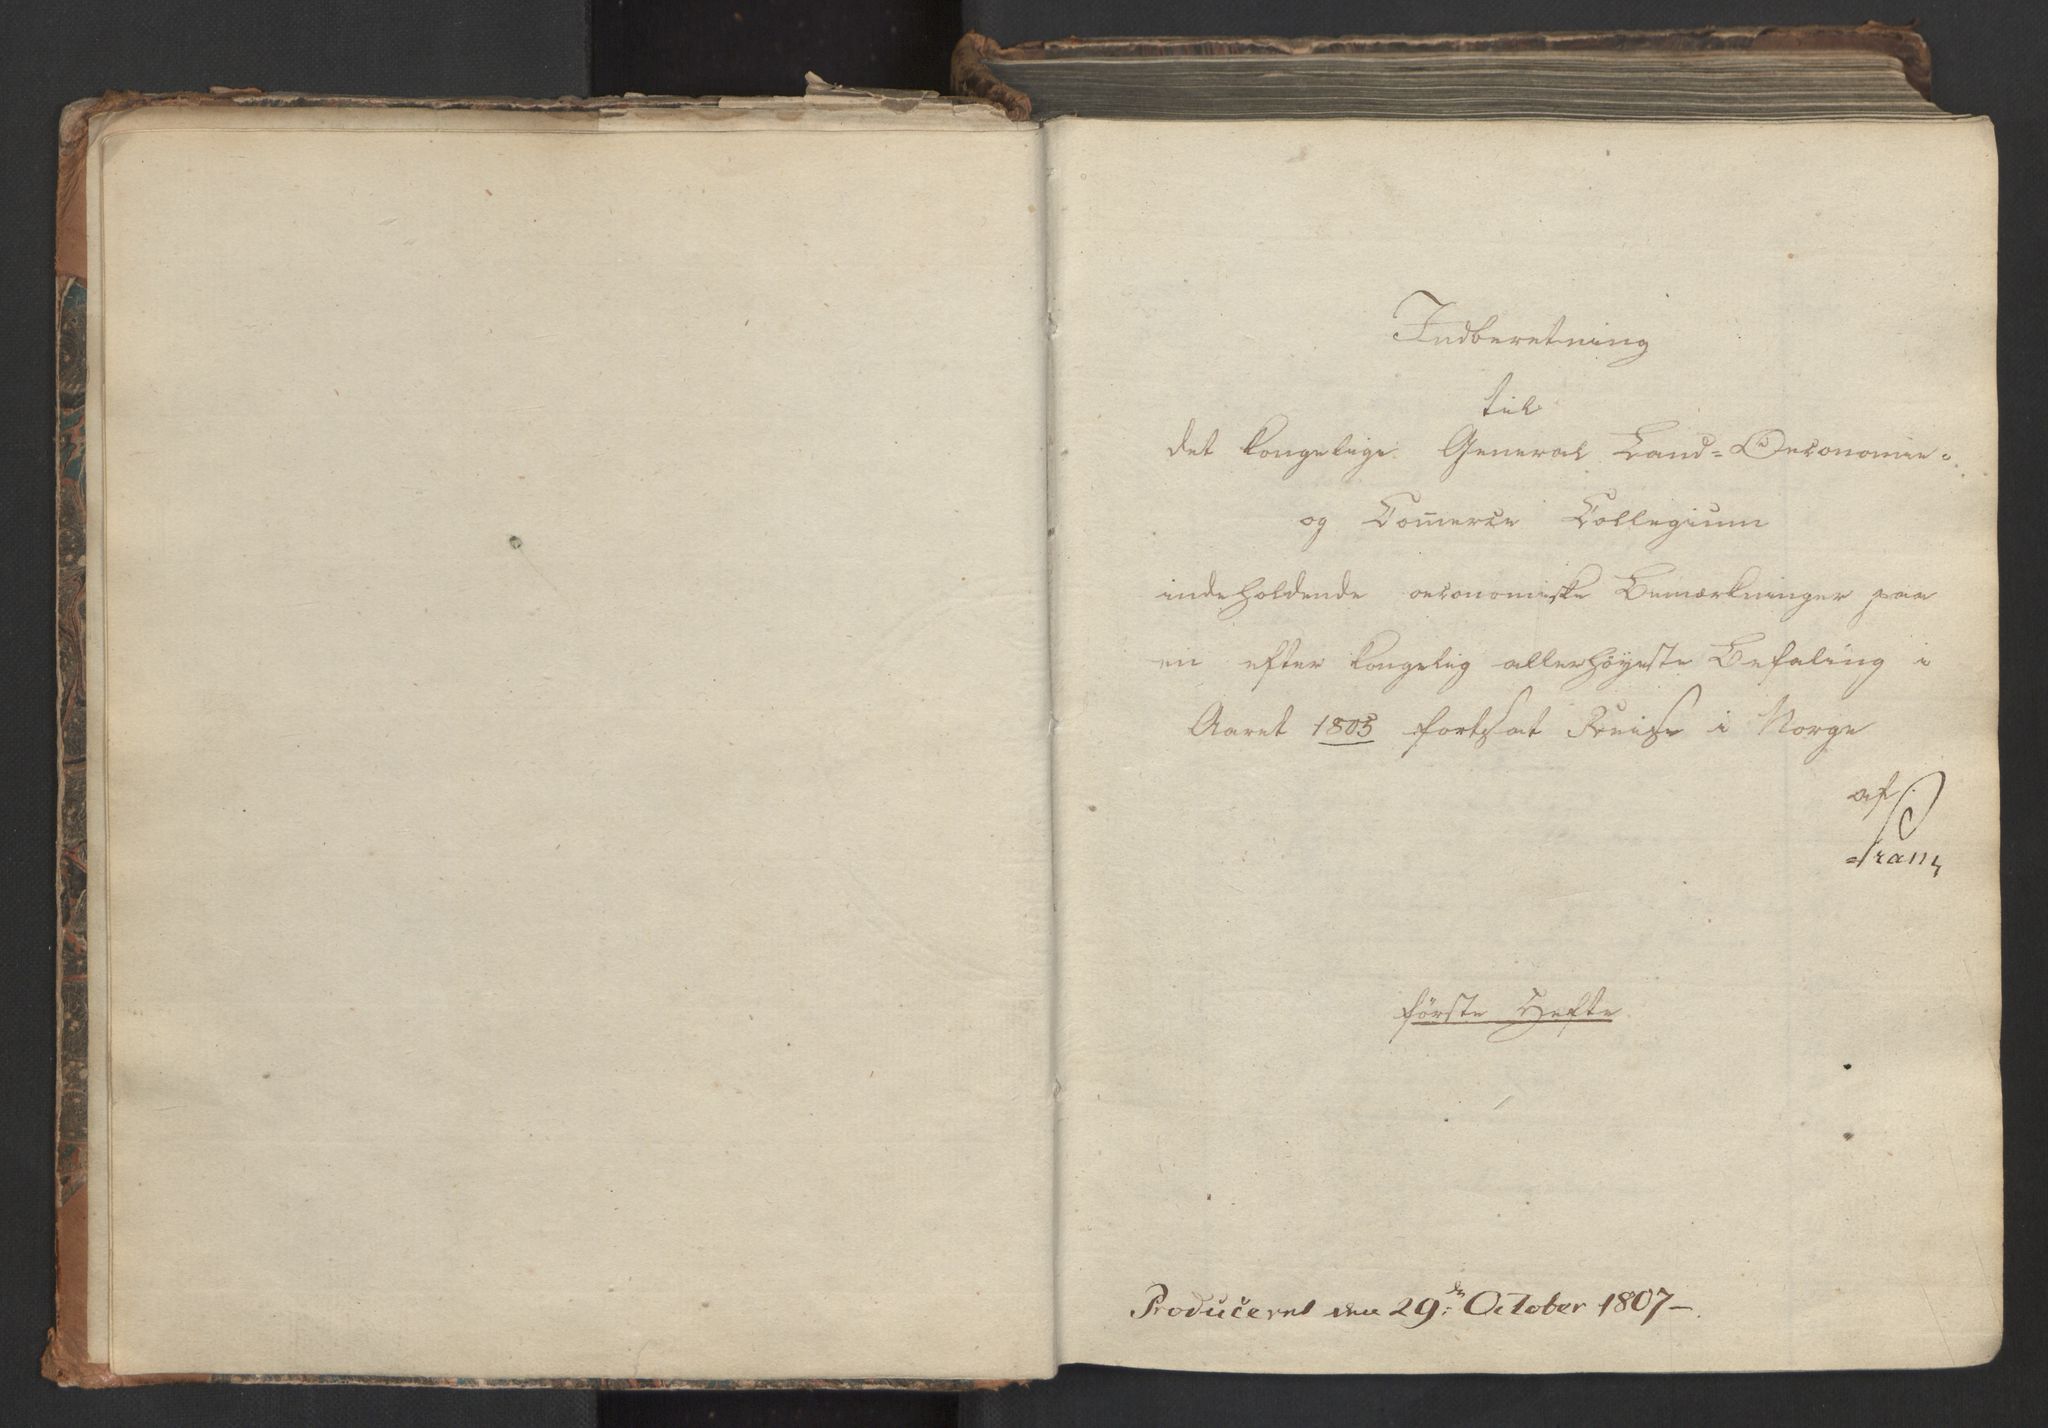 Indberetning
til
det kongelige General Land=Oeconomie=
og Com̄erce Collegium
indeholdende oeconomiske Bemærkninger paa
en efter kongelig allerhöyeste Befaling i
Aaret 1805 fortsat Reise i Norge
af
Pram
förste Hefte
Produceret den 29:de October 1807—.